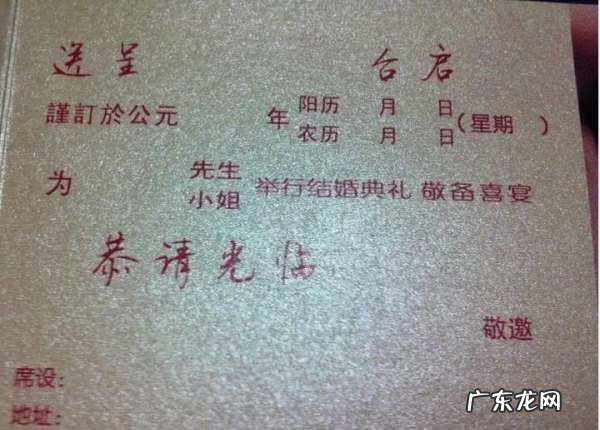 送呈 台启
謹訂於公元 年 阳历 月 日 (星期 )
农历 月 日
为 先生 举行结婚典礼 敬备喜宴
小姐
恭请光临
敬邀
席设：
地址：
广东龙网